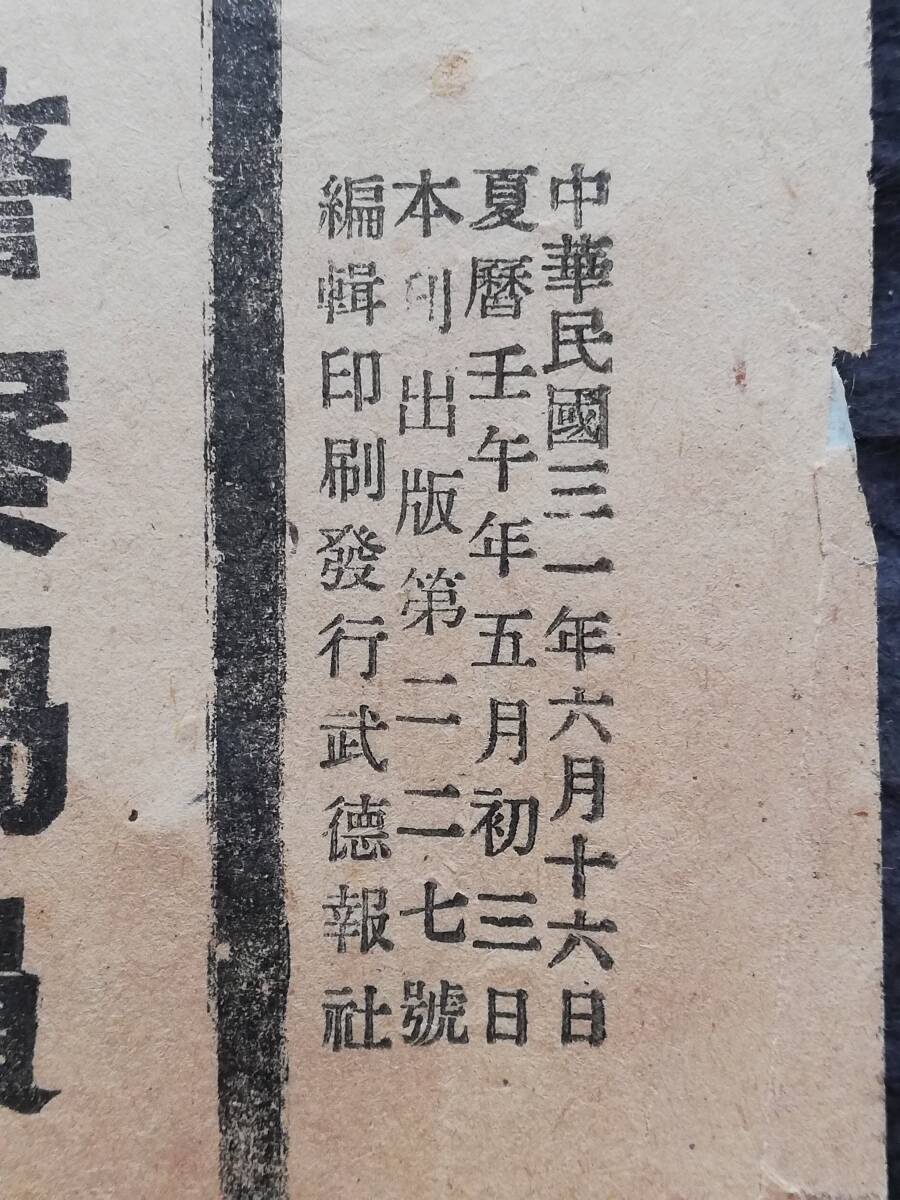 中華民國三一年六月十六日
夏曆壬午年五月初三日
本刊出版第二二七號
編輯印刷發行武德報社